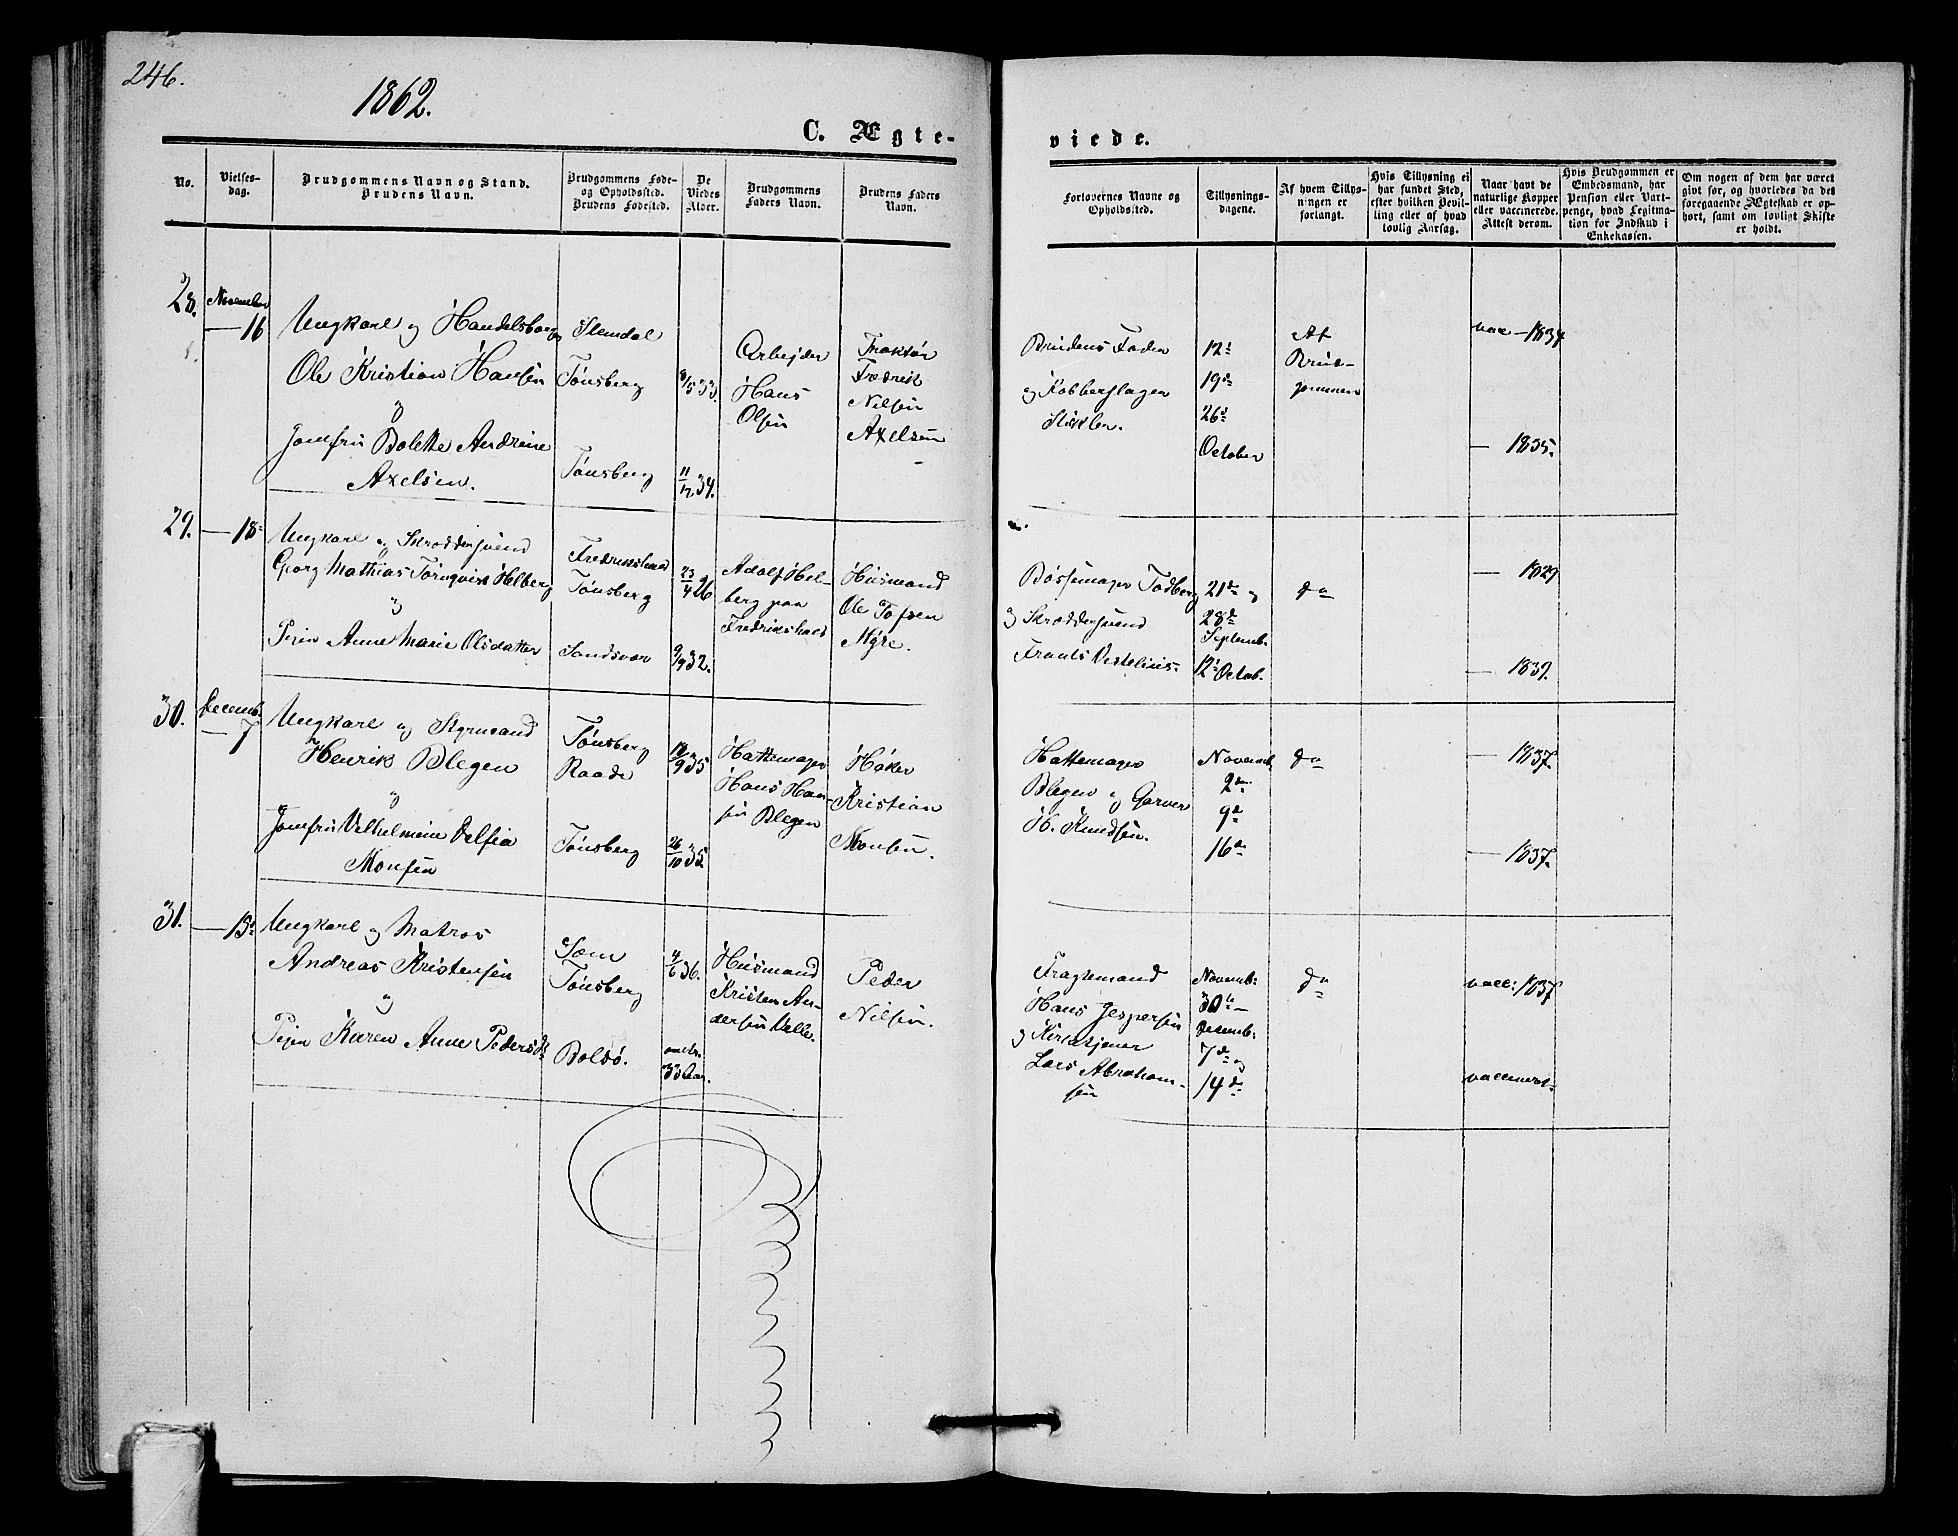 246.
1862.
C. Ægte-
viede.
No.
Vielses-
dag.
Brudgommens Navn og Stand.
Brudens Navn.
Brudgommens Føde-
og Opholdssted.
Brudens Fødested.
De
Viedes
Alder.
Brudgommens
Faders Navn.
Brudens Faders
Navn.
Forlovernes Navne og
Opholdssted.
Tillysnings-
dagene.
Af hvem Tillys-
ningen er
forlangt.
Hvis Tillysning ei
har fundet Sted,
efter hvilken Bevil-
ling eller af hvad
lovlig Aarsag.
Naar havt de
naturlige Kopper
eller vaccinerede.
Attest derom.
Hvis Brudgommen er
Embedsmand, har
Pension eller Vart-
penge, hvad Legitima-
tion for Indskud i
Enkekassen.
Om nogen af dem har været
gift før, og hvorledes da det
foregaaende Ægteskab er op-
hørt, samt om lovligt Skifte
er holdt.
28.
November
— 16
Ungkarl og Handelsborger
Ole Kristian Hansen
og
Jomfru Bolette Andrine
Axelsen.
Slemdal
Tønsberg
Tønsberg
8/5 33.
11/12 34.
Arbejder
Hans
Olsen
Traktør
Fredrik
Nilsen
Axelsen
Brudens Fader
og Kobberslager
12te
19de
26de
October
Af
Brud-
gommen
vacc — 1834
— 1835.
29.
— 18
Ungkarl og Skræddersvend
Georg Mathias Törnqvist Helberg
og
Anne Marie Olsdatter
Fredrikshald
Tønsberg
Sandsvær
23/4 26
9/9 32.
Adolf Hel-
berg paa
Fredrikshald
Husmand
Ole Tofsen
Myre.
Bøssemager Todberg
og Skræddersvend
21de og
28de
Septemb.
12te Octob.
do
— 1829
— 1839.
30.
Decemb.
— 7
Ungkarl og Styrmand
Henrik Blegen
og
Jomfru Vilhelmine Delfia
Monsen
Tønsberg
Raade
Tønsberg
18/9 35
26/10 35.
Hattemager
Hans Han-
sen Blegen
Høker
Kristian
Monsen.
Hattemager
Blegen og Garver
H. Knudsen.
Novemb.
2de
9de
16de
do
— 1837.
— 1837.
31.
Ungkarl og Matros
Andreas Kristensen
og
Pigen Karen Anne Pedersdtr
Sæm
Tønsberg
Bolsø.
4/6 36.
33 Aar.
Husmand
Kristen An-
dersen
Peder
Nilsen.
Fragtemand
Hans Jespersen
og Kirketjener
Lars Abraham-
sen
Novemb:
30te —
Decemb:
7de og
14de
do
vacc: 1837
vaccineret